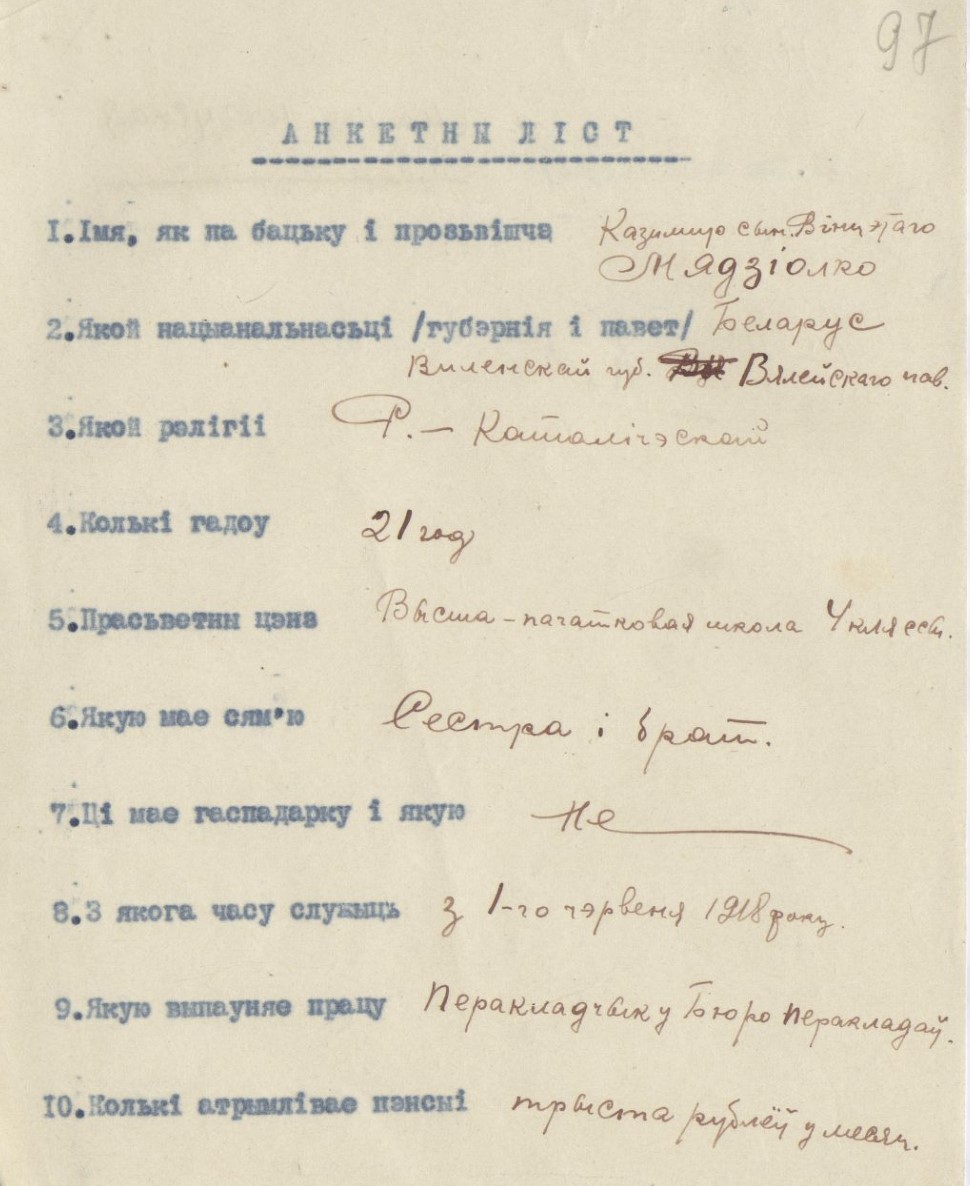 97
АНКЕТНЫ ЛІСТ
1. Імя, як па бацьку і прозьвішча Казимир сын Вінцэтаго
Мядзіолко
2. Якой нацыянальнасьці /губэрнія і павет/ Беларус
Виленскай губ. Вялейскаго пав.
3. Якой рэлігіі Р. – Каталічэскай
4. Колькі гадоу 21 год
5. Прасьветны цэнз Высша-пачатковая школа 4 клясы.
6. Якую мае сям'ю Сестра і брат.
7. Ці мае гаспадарку і якую Не
8. З якога часу служыць з 1-го чэрвеня 1918 року.
9. Якую выпауняе працу Перакладчык у Бюро перакладаў.
10. Колькі атрымлівае пэнсыі трыста рублёў у месяц.